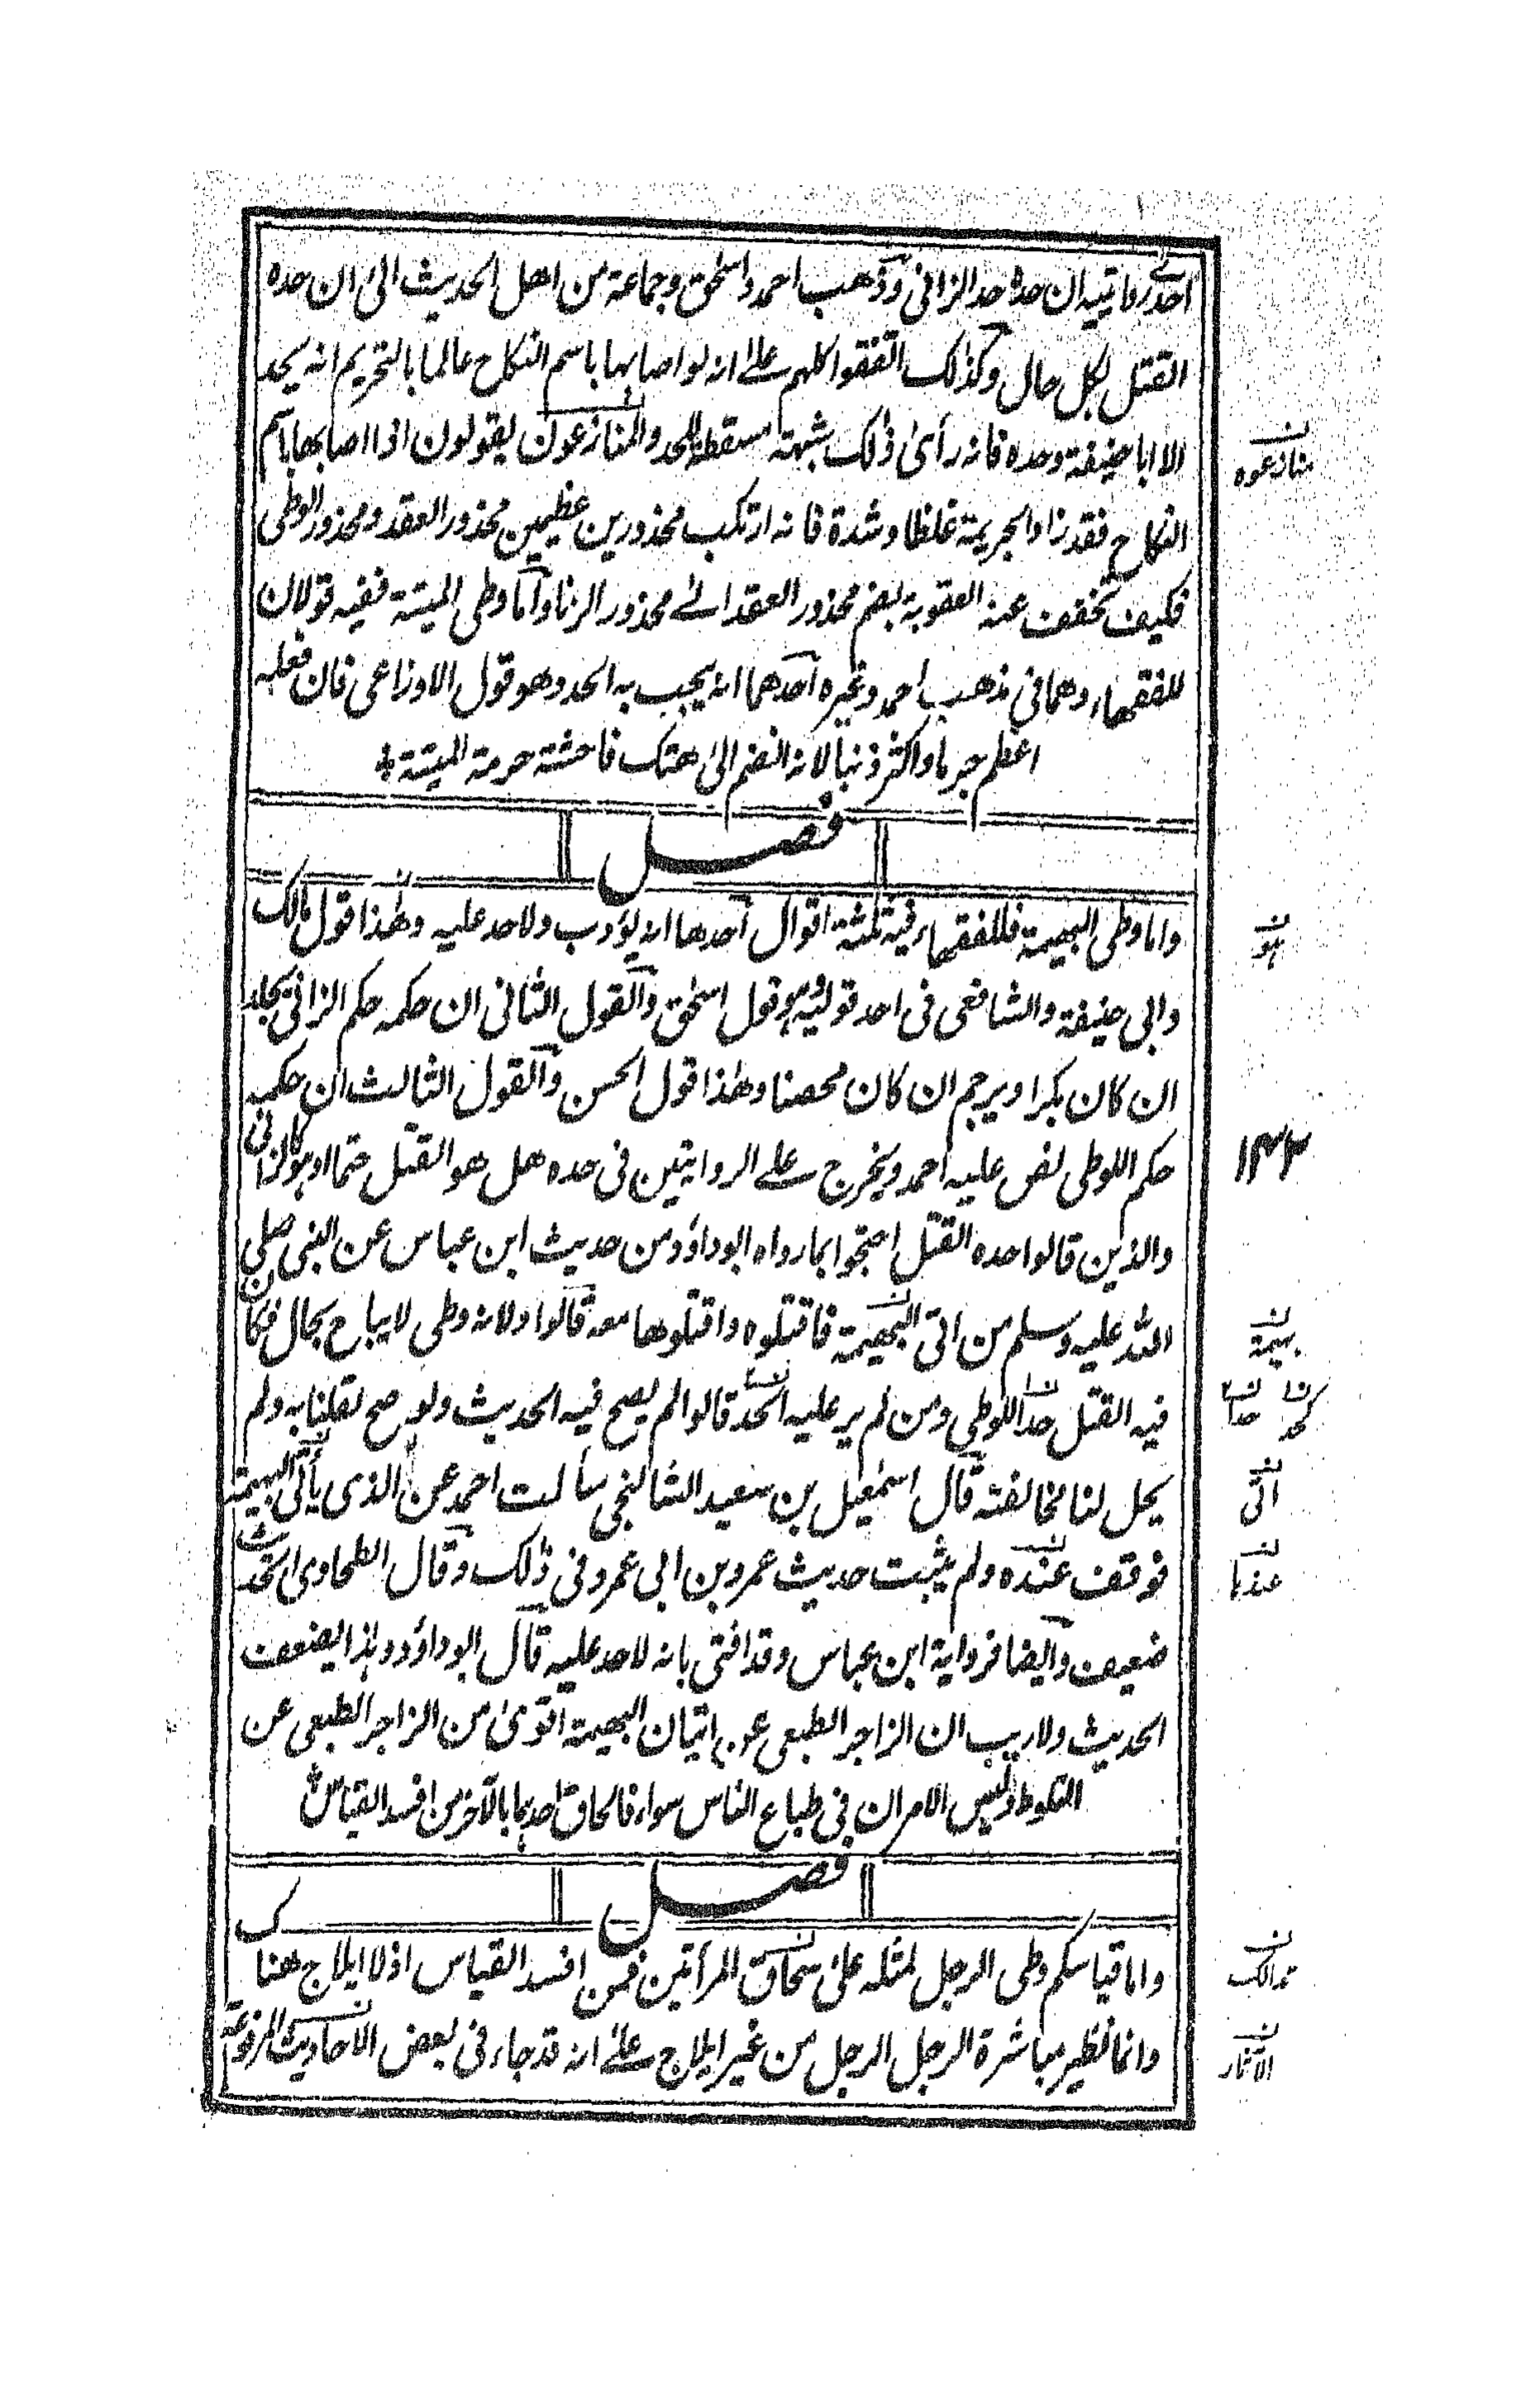 احدى روايتيه ان حده حد الزانى وذهب احمد واسحٰق وجماعة من اهل الحديث الىٰ ان حده
القتل بكل حال وكذالك اتفقوا كلهم علىٰ انه لو اصابها باسم النكاح عالما بالتحريم انه يحد
الا ابا حنيفة وحده فانه رأىٰ ذٰلك شبهة مسقطة للحد والمنازعون يقولون اذا اصابها باسم
منازعوه
النكاح فقد زاد الجريمة غلظا وشدة فانه ارتكب محذورين عظيمين محذور العقد ومحذور الوطى
فكيف تخفف عنه العقوبة بضم محذور العقد الى محذور الزنا واما وطى الميتة ففيه قولان
للفقهاء وهما فى مذهب احمد وغيره احدهما انه يجب به الحد وهو قول الاوزاعى فان فعله
اعظم جرما واكثر ذنبا لانه انضم الىٰ هتك فاحشة حرمة الميتة
فصل
واما وطى البهيمة فللفقهاء فيه ثلثة اقوال احدها انه يؤدب ولا حد عليه وهٰذا قول مالك
هو
وابى حنيفة والشافعى فى احد قوليه وهو قول اسحٰق والقول الثانى ان حكمه حكم الزانى يجلد
ان كان بكرا ويرجم ان كان محصنا وهٰذا قول الحسن والقول الثالث ان حكمه
حكم اللوطى نص عليه احمد ويخرج على الروايتين فى حده هل هو القتل حتما او هو كالزانى
١٣٣
والذين قالوا حده القتل احتجوا بما رواه ابوداؤد من حديث ابن عباس عن النبى صلى
الله عليه وسلم من اتى البهيمة فاقتلوه واقتلوها معه قالوا ولانه وطى لا يباح بحال فكان
بهيمة
فيه القتل حد اللوطى ومن لم ير عليه الحد قالوا لم يصح فيه الحديث ولو صح لقلنا به ولم
كحد حدا
يحل لنا مخالفته قال اسمٰعيل بن سعيد الشالنجى سألت احمد عن الذى يأتى البهيمة
اتى
فوقف عنده ولم يثبت حديث عمرو بن ابى عمرو فى ذٰلك وقال الطحاوى الحديث
عندها
ضعيف وايضا فرواية ابن عباس وقد افتى بانه لا حد عليه قال ابوداؤد وهذا يضعف
الحديث ولا ريب ان الزاجر الطبعى عن اتيان البهيمة اقوىٰ من الزاجر الطبعى عن
التلوط وليس الامران فى طباع الناس سواء فالحاق احدهما بالآخر من افسد القياس
فصل
واما قياسكم وطى الرجل لمثله علىٰ سحاق المرأتين فمن افسد القياس اذ لا ايلاج هنا
هنالك
وانما نظير مباشرة الرجل الرجل من غير ايلاج علىٰ انه قد جاء فى بعض الاحاديث المرفوعة
الآثار